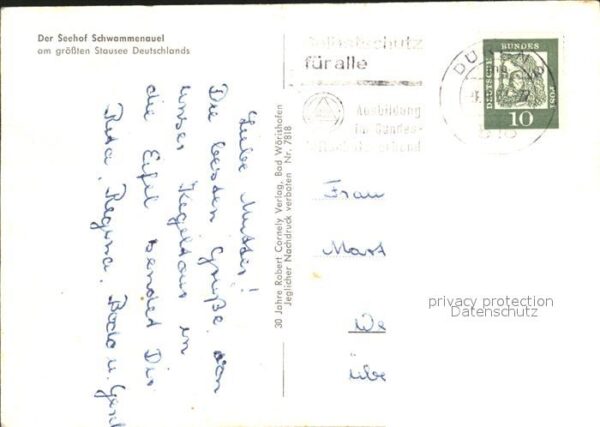 Der Seehof Schwammenauel
am größten Stausee Deutschlands
Selbstschutz
für alle
Ausbildung
im Bundes-
luftschutzverband
DÜREN
DEUTSCHE BUNDESPOST
10
Liebe Mutter!
Die besten Grüße von
unser Kegeltour in
die Eifel sendet Dir
Rita, Regina, Bodo u. Gerd
30 Jahre Robert Cornely Verlag, Bad Wörishofen
Jeglicher Nachdruck verboten Nr. 7818
Frau
Mart
We
übe
privacy protection
Datenschutz